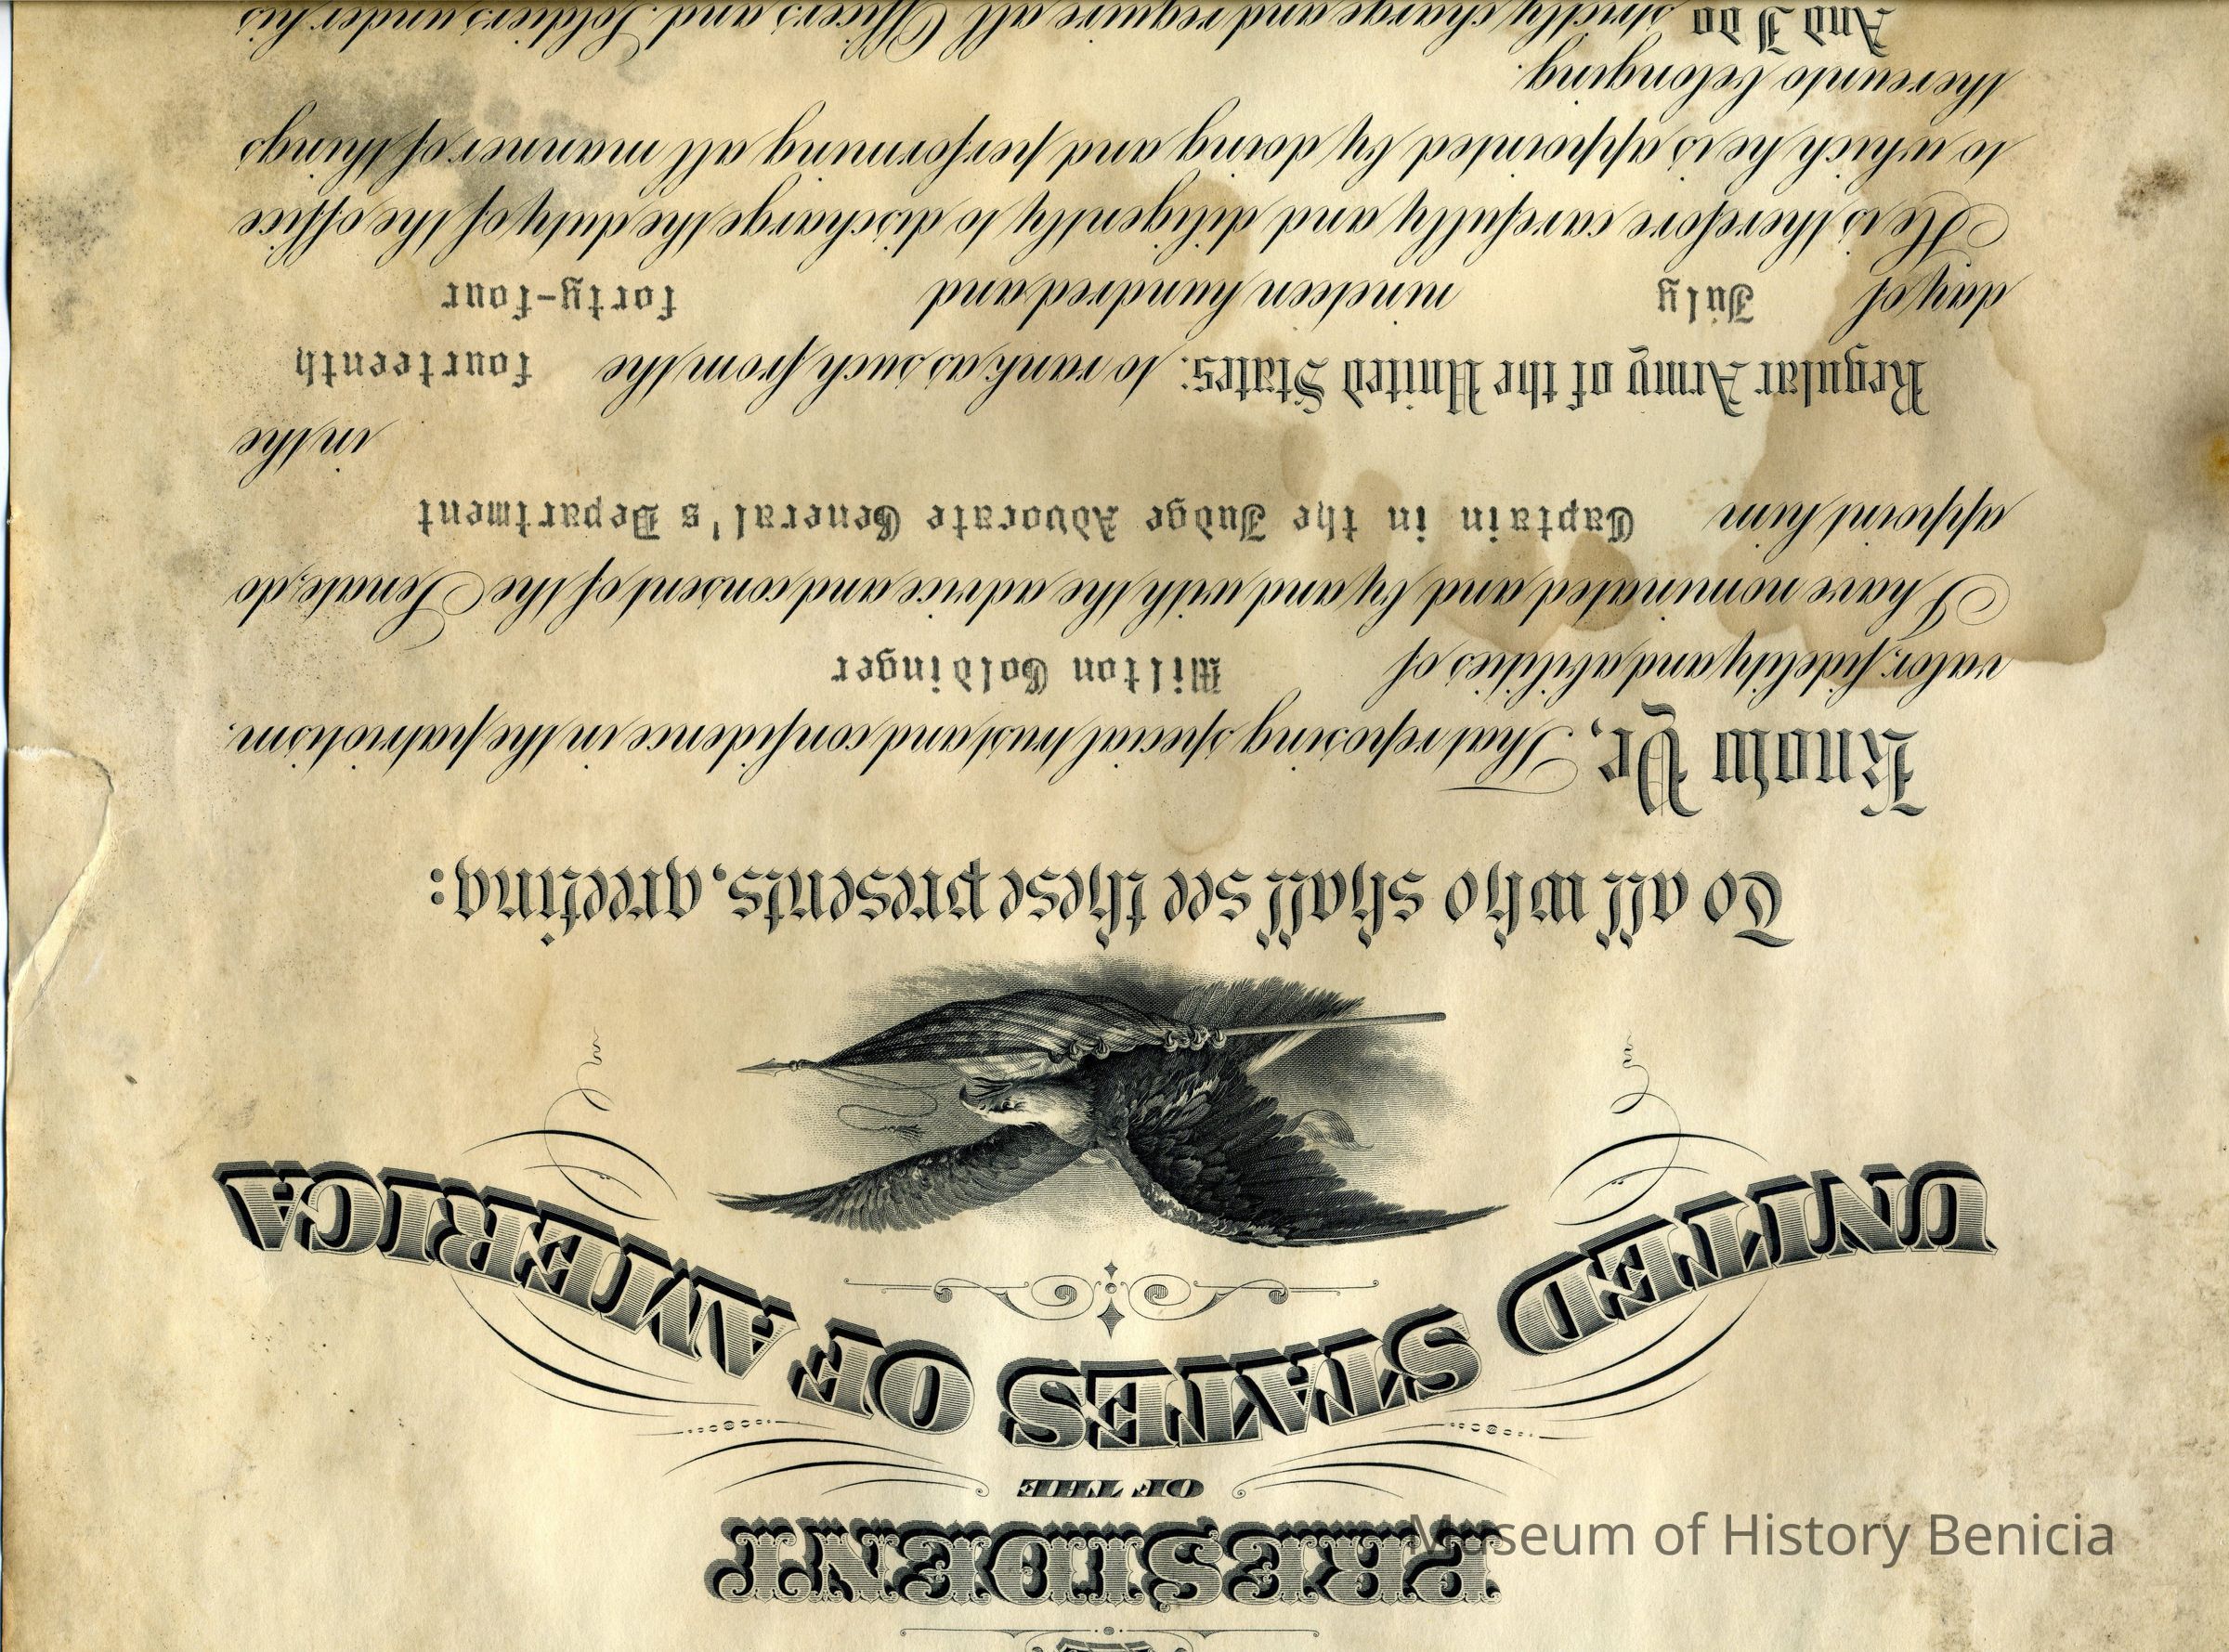 PRESIDENT
OF THE
UNITED STATES OF AMERICA
To all who shall see these presents, greeting:
Know Ye, That reposing special trust and confidence in the patriotism,
valor, fidelity and abilities of Milton Goldinger
I have nominated and by and with the advice and consent of the Senate, do
appoint him Captain in the Judge Advocate General's Department
in the
Regular Army of the United States: to rank as such from the fourteenth
day of July nineteen hundred and forty-four
He is therefore carefully and diligently to discharge the duty of the office
to which he is appointed by doing and performing all manner of things
thereunto belonging.
And I do strictly charge and require all Officers and Soldiers under his
Museum of History Benicia